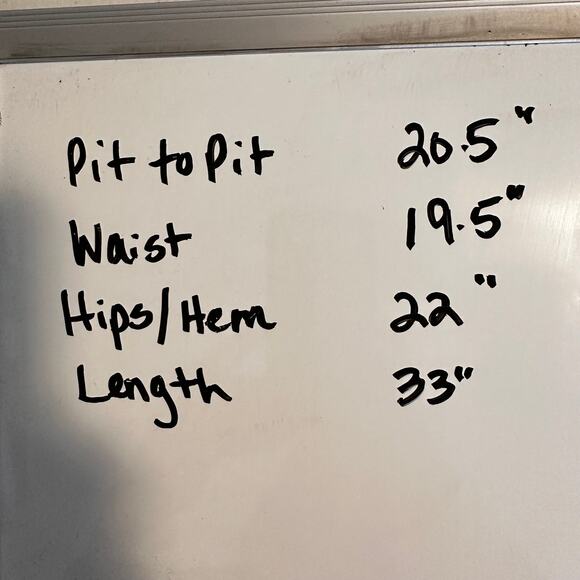 Pit to Pit 20.5"
Waist 19.5"
Hips/Hem 22"
Length 33"